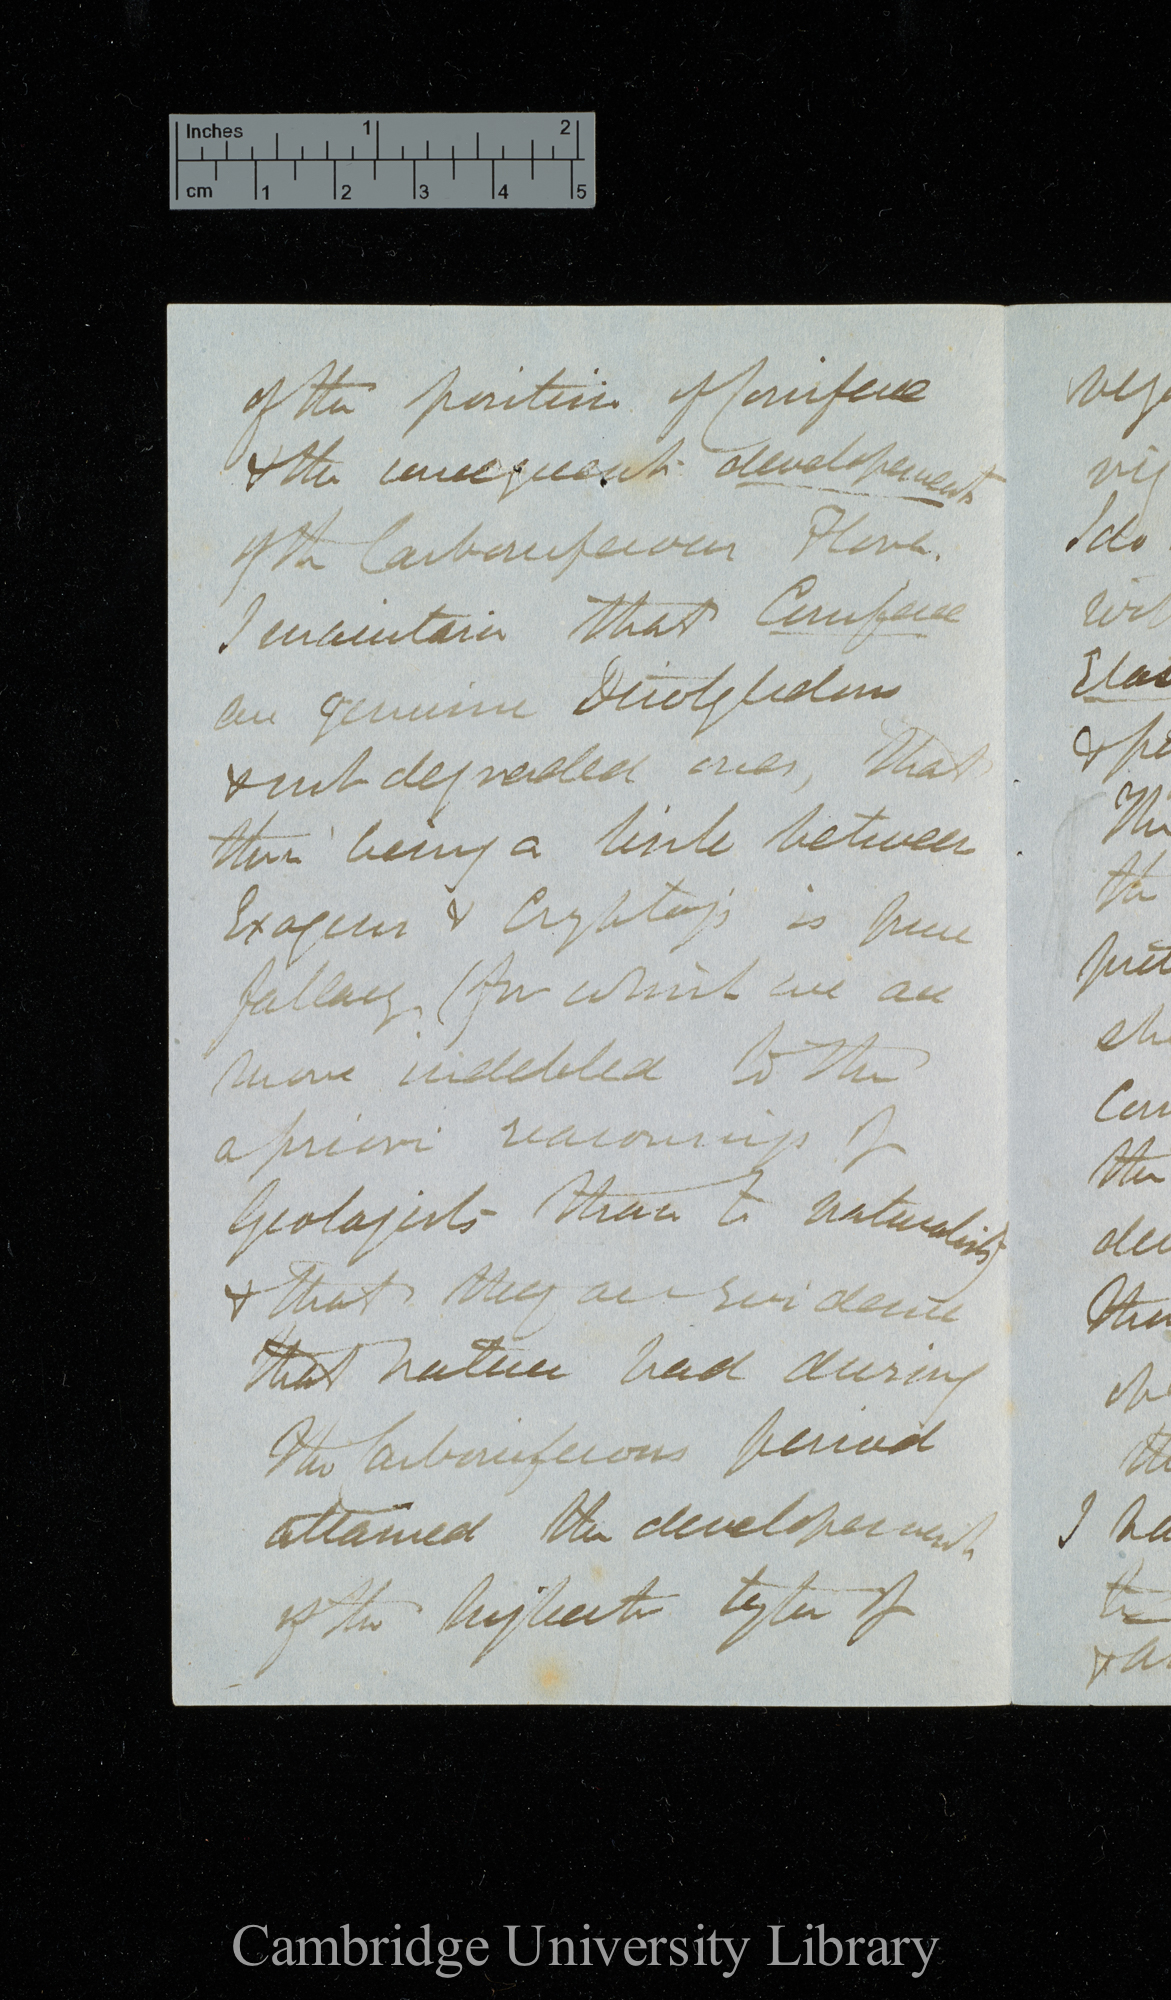 Inches 1 2
cm 1 2 3 4 5
of the position of Coniferæ
& the consequent developement
of the Carboniferous Flora.
I maintain that Coniferæ
are genuine Dicotyledons
& not degraded ones, that
their being a link between
Exogens & Cryptog's is pure
fallacy, (for which we are
more indebted to the
a priori reasonings of
Geologists than to naturalists)
& that they are evidence
that nature had during
the Carboniferous period
attained the developement
of the highest type of
I do
Elat
the
the
I ha
Cambridge University Library